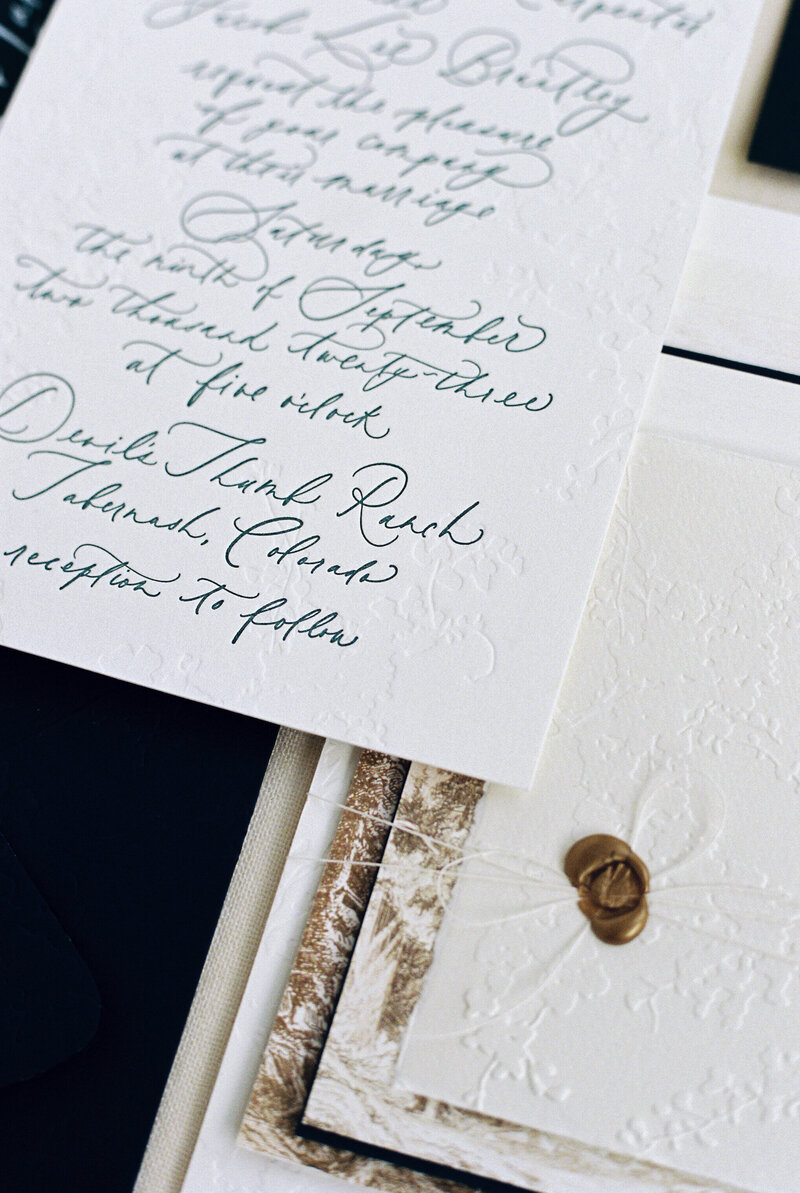 Lee Brantley
request the pleasure
of your company
at their marriage
Saturday,
the ninth of September
two thousand twenty-three
at five o'clock
Devil's Thumb Ranch
Tabernash, Colorado
reception to follow